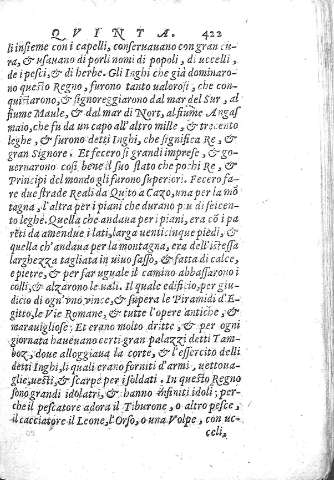 QVINTA. 422
li insieme con i capelli, conseruauano con gran cu-
ra, & usauano di porli nomi di popoli, di uccelli,
de i pesci, & di herbe. Gli Inghi che già dominaro-
no questo Regno, furono tanto ualorosi, che con-
quistarono, & signoreggiarono dal mar del Sur, al
fiume Maule, & dal mar di Nort, al fiume Angas
maio, che fu da un capo all'altro mille, & trecento
leghe, & furono detti Inghi, che significa Re, &
gran Signore. Et fecero sì grandi imprese, & go-
uernarono così bene il suo stato che pochi Re, &
Principi del mondo gli furono superiori. Fecero fa-
re due strade Reali da Quito a Cazo, una per la mõ
tagna, l'altra per i piani che durano piu di seicen-
to leghe. Quella che andaua per i piani, era cõ i pa
reti da amendue i lati, larga uenticinque piedi, &
quella ch'andaua per la montagna, era dell'istessa
larghezza tagliata in uiuo sasso, & fatta di calce,
e pietre, & per far uguale il camino abbassarono i
colli, & alzarono le uali. Il quale edificio, per giu-
dicio di ogn'vno vince, & supera le Piramidi d'E-
gitto, le Vie Romane, & tutte l'opere antiche, &
marauigliose; Et erano molto dritte, & per ogni
giornata haueuano certi gran palazzi detti Tam-
boz, doue alloggiaua la corte, & l'essercito delli
detti Inghi, li quali erano forniti d'armi, uettoua-
glie, uesti, & scarpe per i soldati. In questo Regno
sono grandi idolatri, & hanno infiniti idoli; per-
che il pescatore adora il Tiburone, o altro pesce,
il cacciatore il Leone, l'Orso, o una Volpe, con uc-
celi,